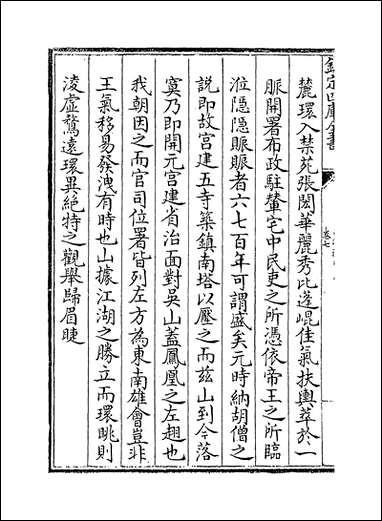 欽定四庫全書
卷七
麓環入禁苑張閎華麗秀比蓬崐佳氣扶輿萃於一
脈開署布政駐輦宅中民吏之所憑依帝王之所臨
涖隠隠賑賑者六七百年可謂盛矣元時納胡僧之
説即故宫建五寺築鎮南塔以壓之而兹山到今落
寞乃即開元宫建省治面對吳山蓋鳳凰之左翅也
我朝因之而官司位署皆列左方為東南雄會豈非
王氣移易發洩有時也山據江湖之勝立而環眺則
淩虛騖遠環異絶特之觀舉歸眉睫